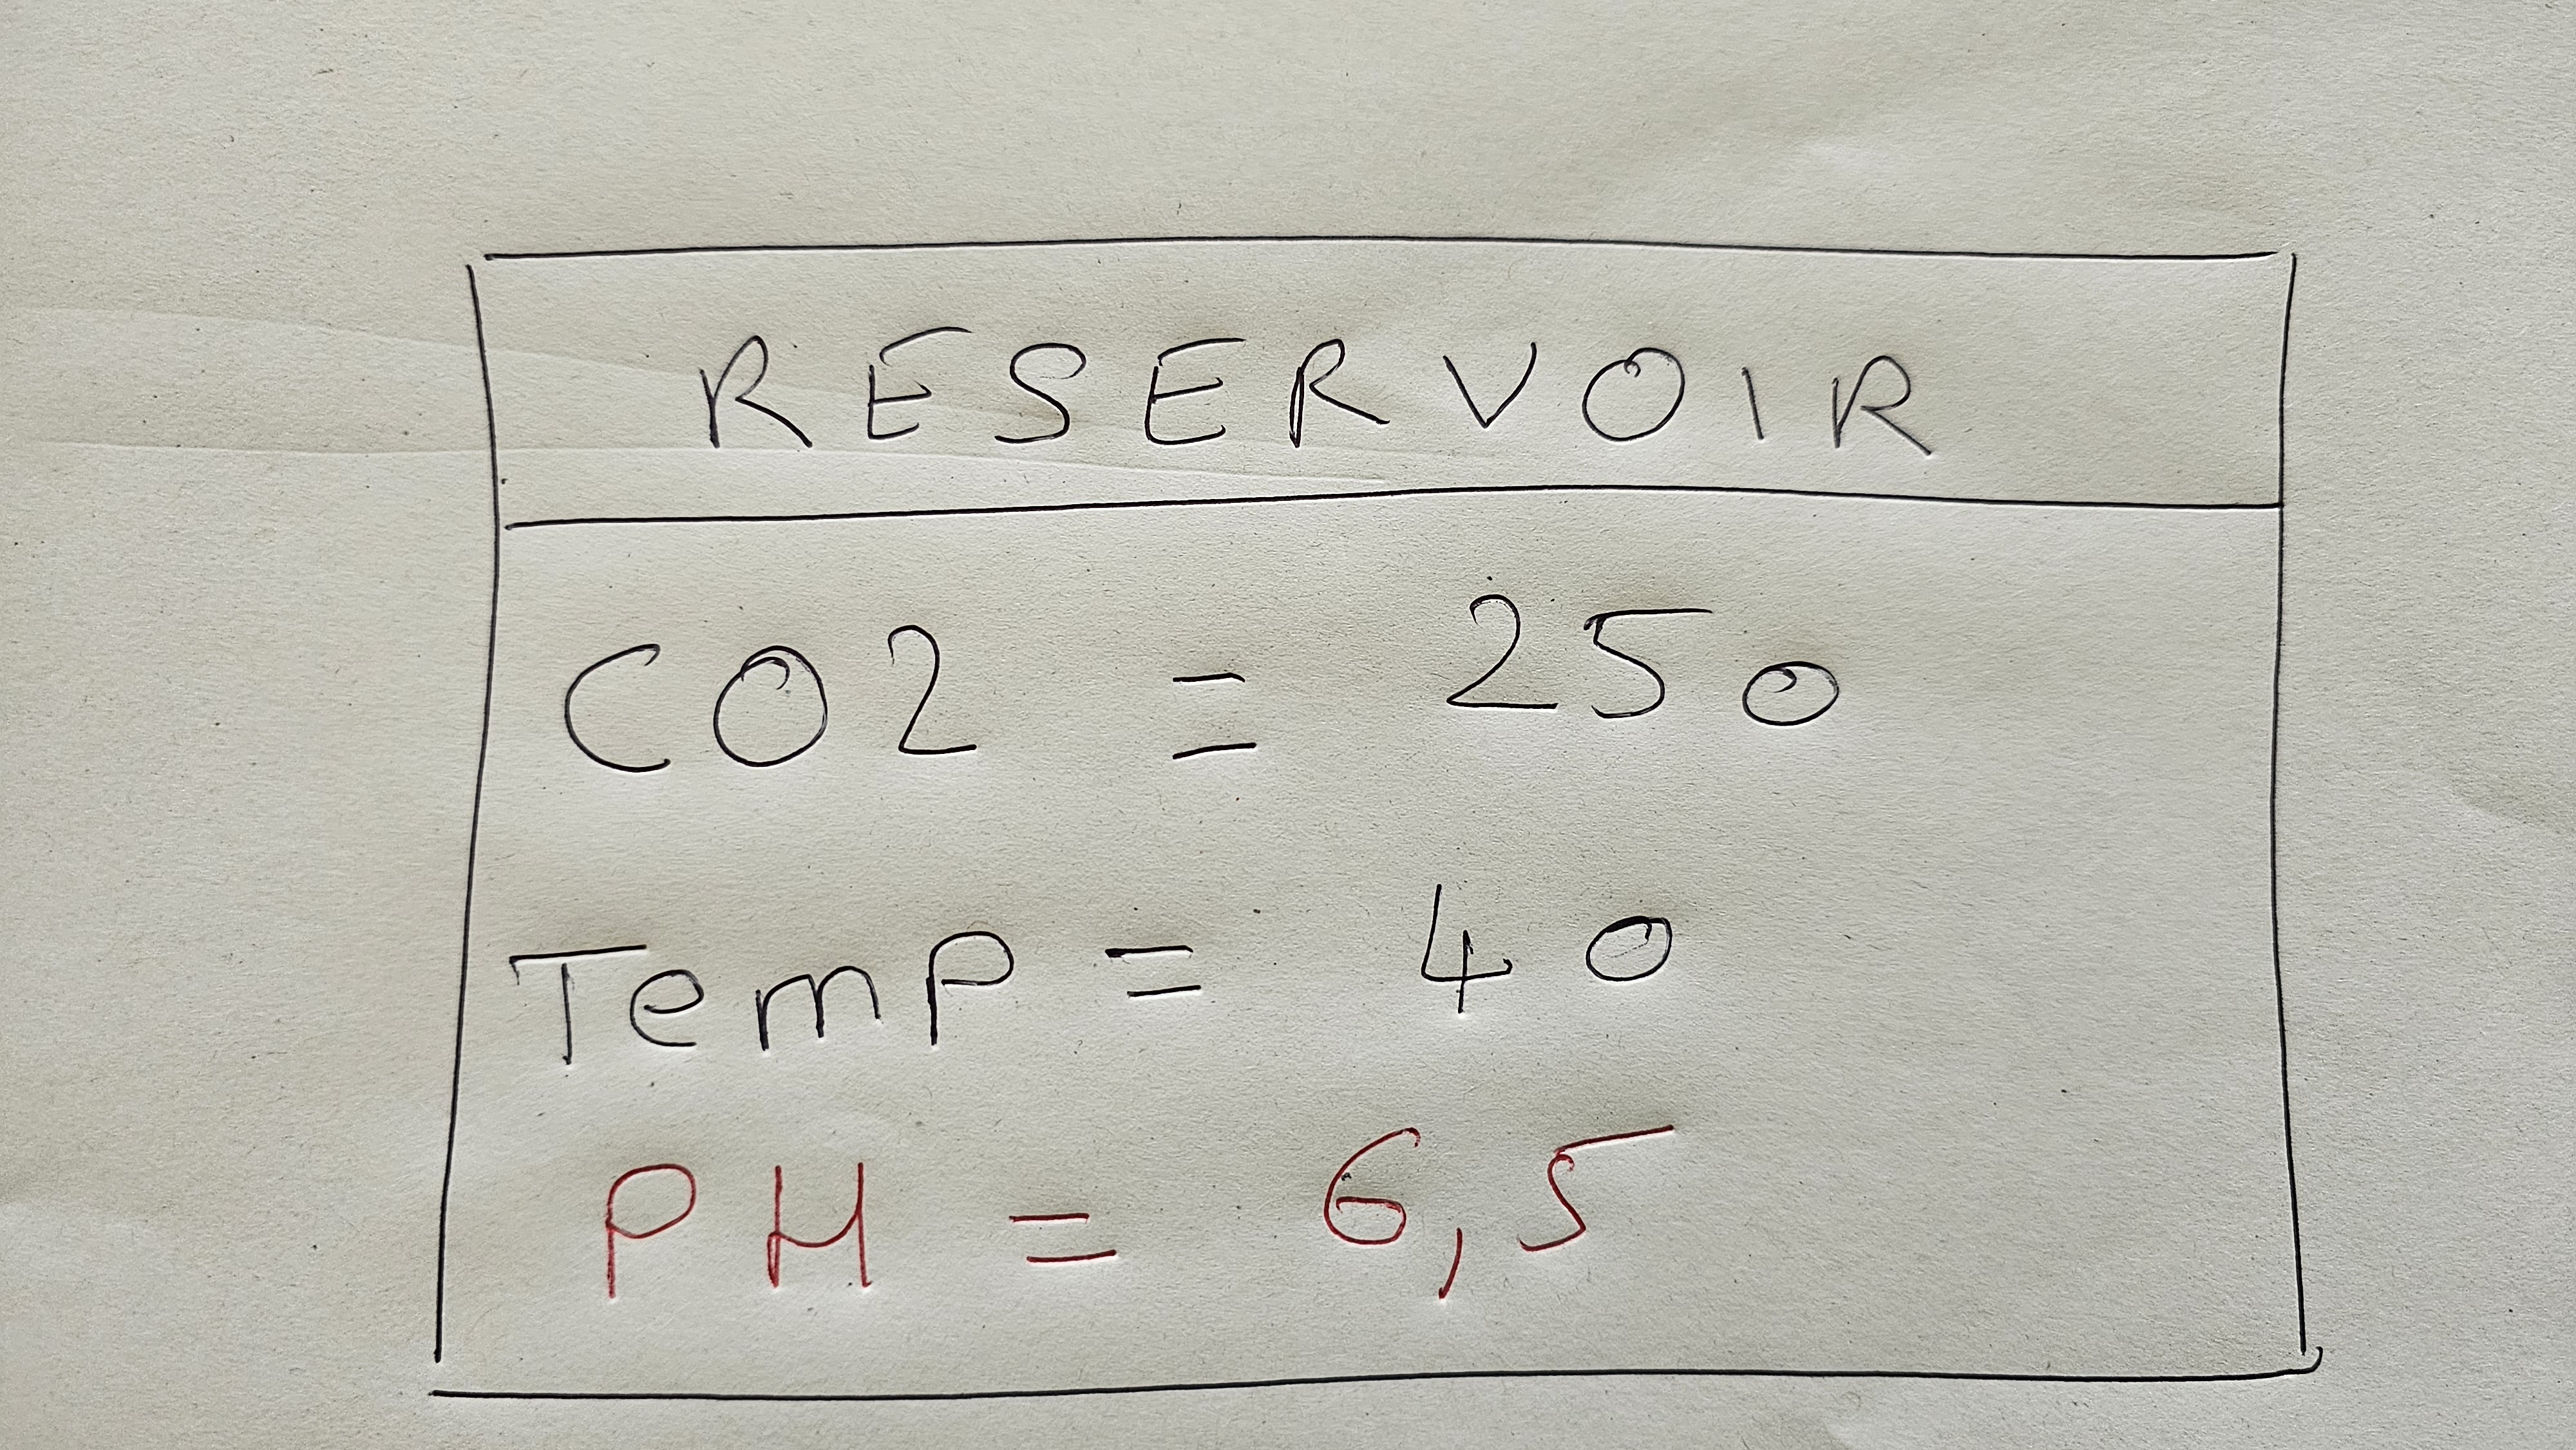 RESERVOIR
CO2 = 250
Temp = 40
PH = 6,5